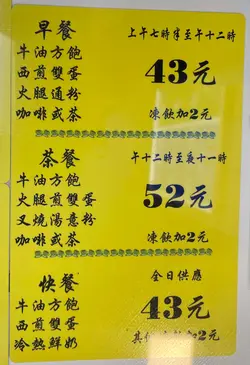 早餐
上午七時半至午十二時
牛油方飽
西煎雙蛋
火腿通粉
咖啡或茶
43元
凍飲加2元
茶餐
午十二時至夜十一時
牛油方飽
火腿煎雙蛋
叉燒湯意粉
咖啡或茶
52元
凍飲加2元
快餐
全日供應
牛油方飽
西煎雙蛋
冷熱鮮奶
43元
其他
加2元